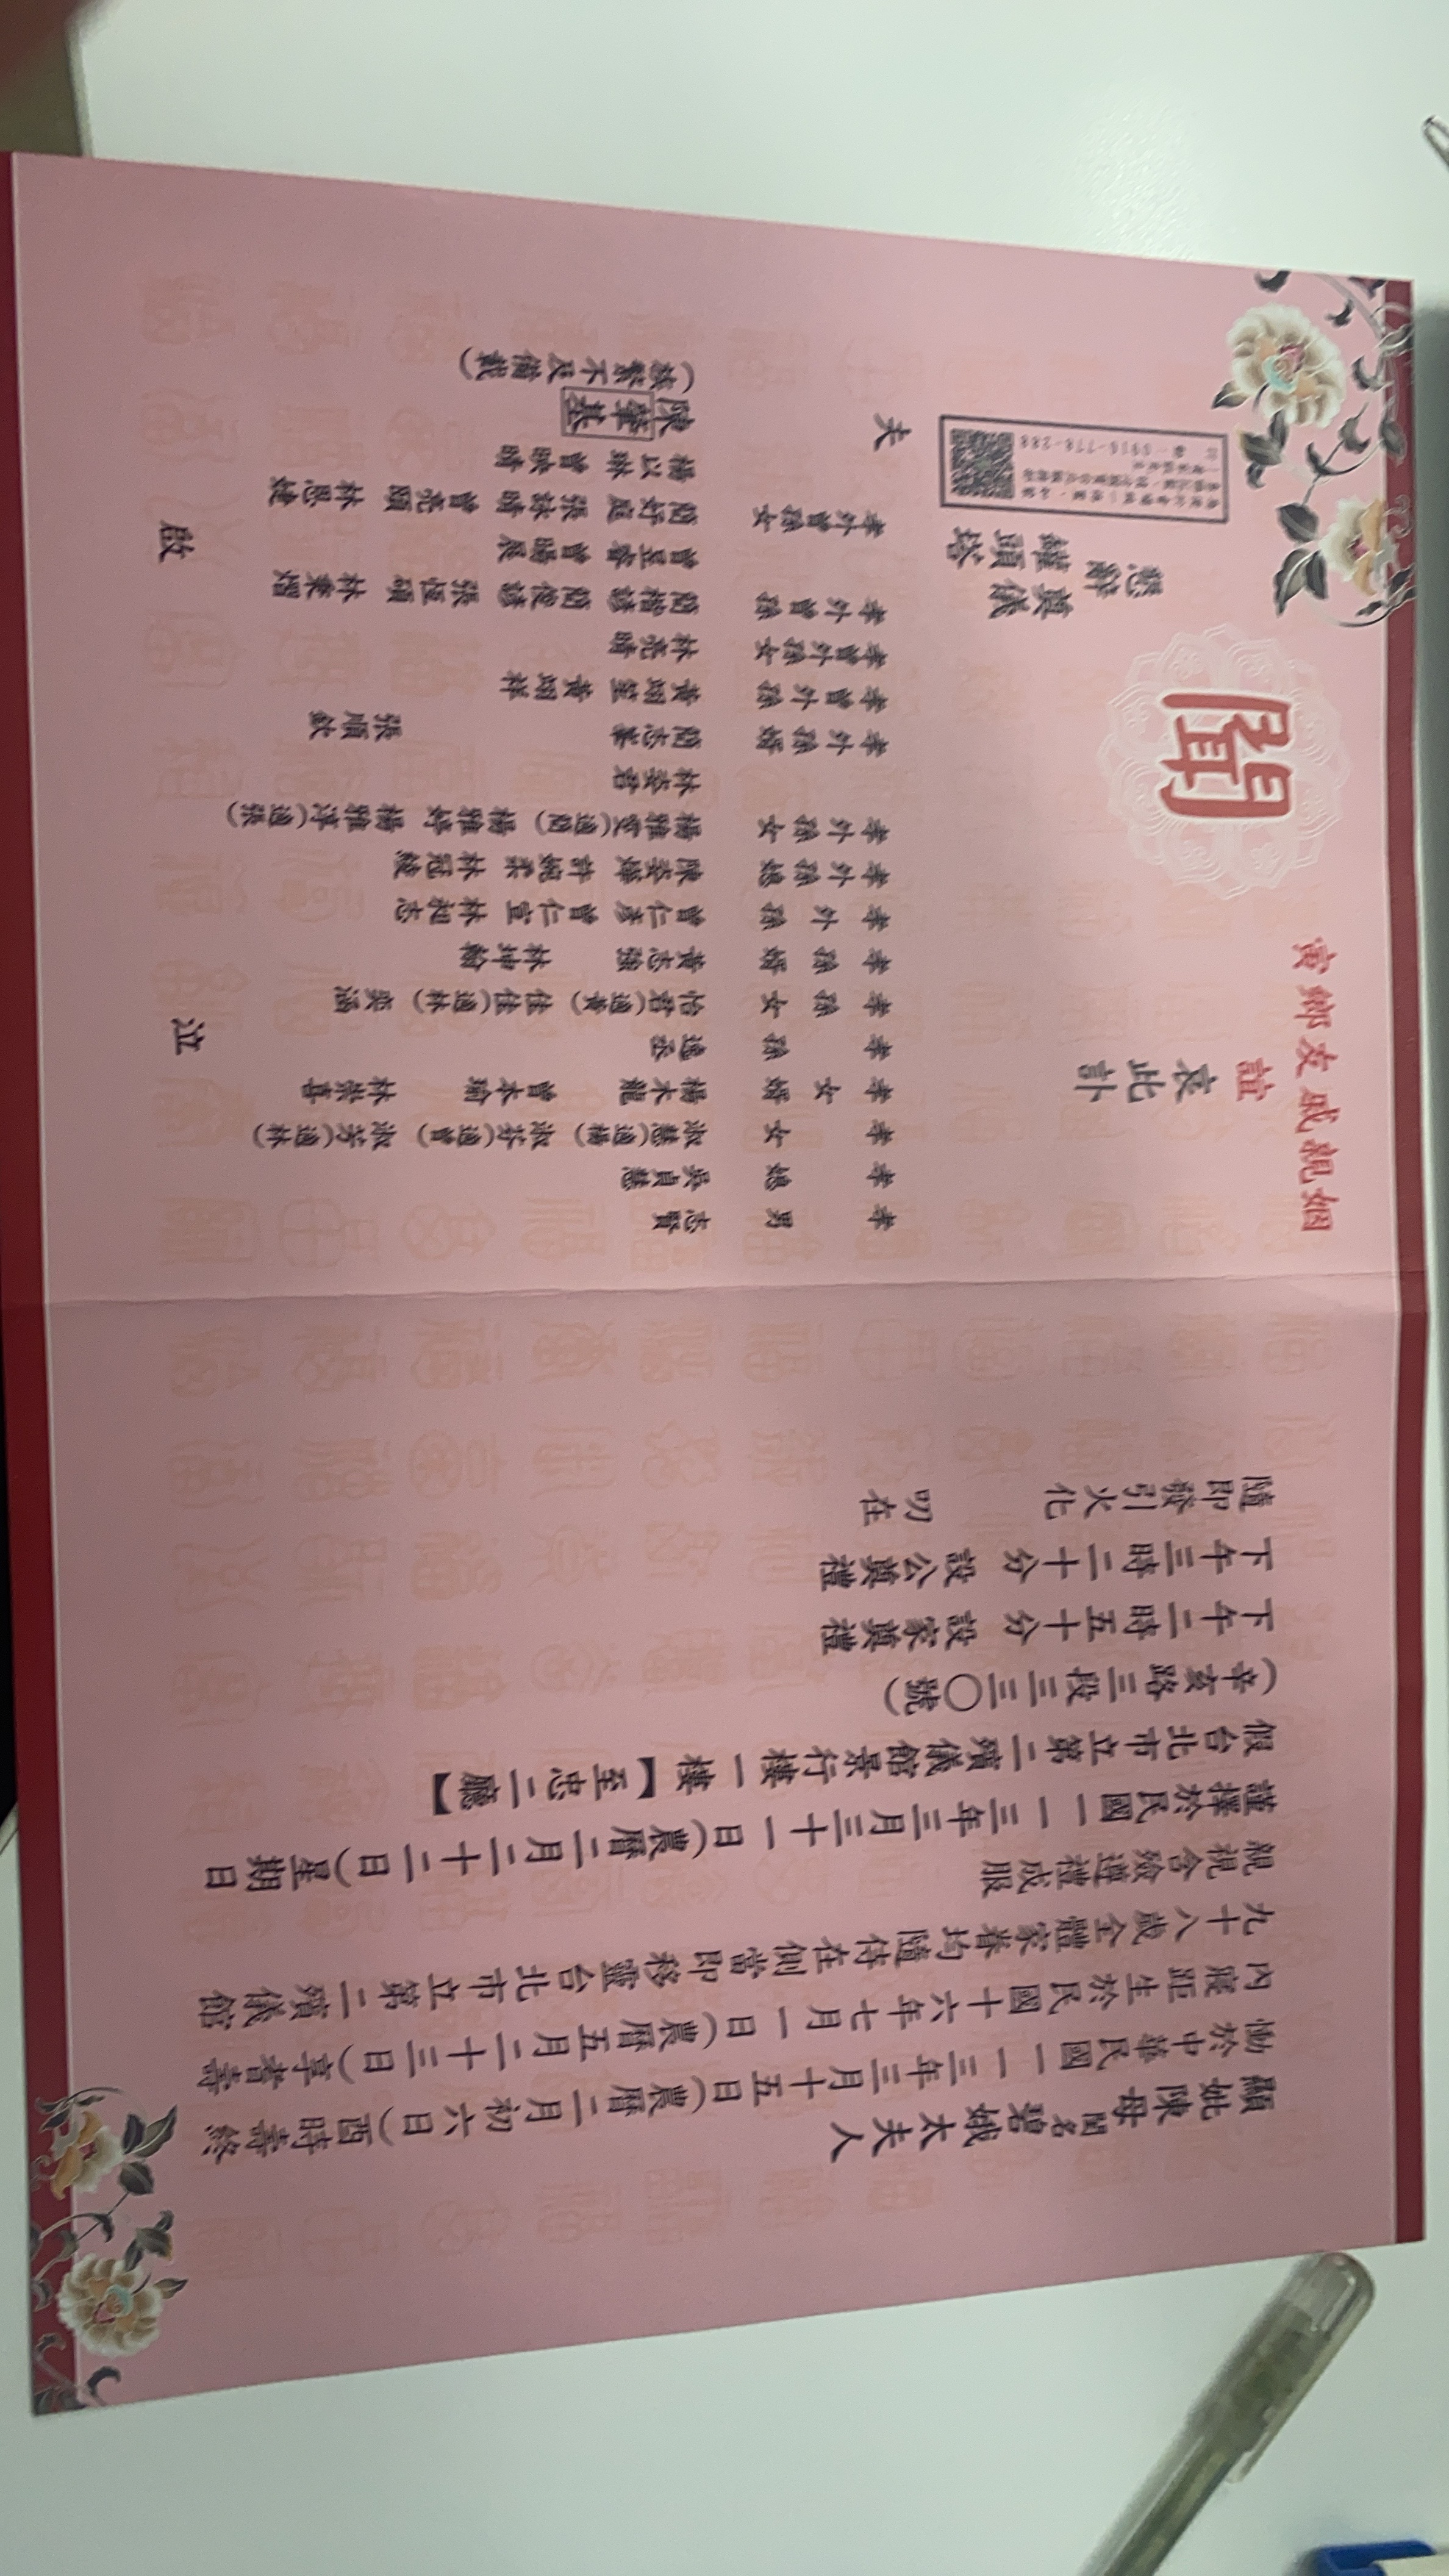 顯妣陳母閨名碧娥太夫人
慟於中華民國一一三年三月十五日(農曆二月初六日)酉時壽終
內寢距生於民國十六年七月一日(農曆五月二十三日)享耆壽
九十八歲全體家眷均隨侍在側當即移靈台北市立第二殯儀館
親視含殮遵禮成服
謹擇於民國一一三年三月三十一日(農曆二月二十二日)星期日
假台北市立第二殯儀館景行樓一樓【至忠二廳】
(辛亥路三段三三〇號)
下午二時五十分 設家奠禮
下午三時二十分 設公奠禮
隨即發引火化 叨在
姻親戚友鄉寅
誼
哀此訃
聞
懇辭
奠儀
罐頭塔
孝男 志賢
孝媳 吳貞慧
孝女 淑慧(適楊) 淑芬(適曾) 淑芳(適林)
孝女婿 楊木龍 曾本瑜 林崇喜
孝孫 逸丞
孝孫女 怡君(適黃) 佳佳(適林) 奕涵
孝孫婿 黃志強 林坤翰
孝外孫 曾仁彥 曾仁宣 林湘志
孝外孫媳 陳姿嬅 許婉柔 林冠綾
孝外孫女 楊雅雯(適簡) 楊雅婷 楊雅淳(適張)
林姿君
孝外孫婿 簡志峯 張順欽
孝曾外孫 黃翊笙 黃翊祥
孝曾外孫女 林亮晴
孝外曾孫 簡楷諺 簡俊諺 張恆碩 林秉熠
曾昱睿 曾暘宸
孝外曾孫女 簡妤庭 張詠晴 曾亮頤 林恩婕
楊以琳 曾映晴
夫 陳肇基
(族繁不及備載)
泣 啟